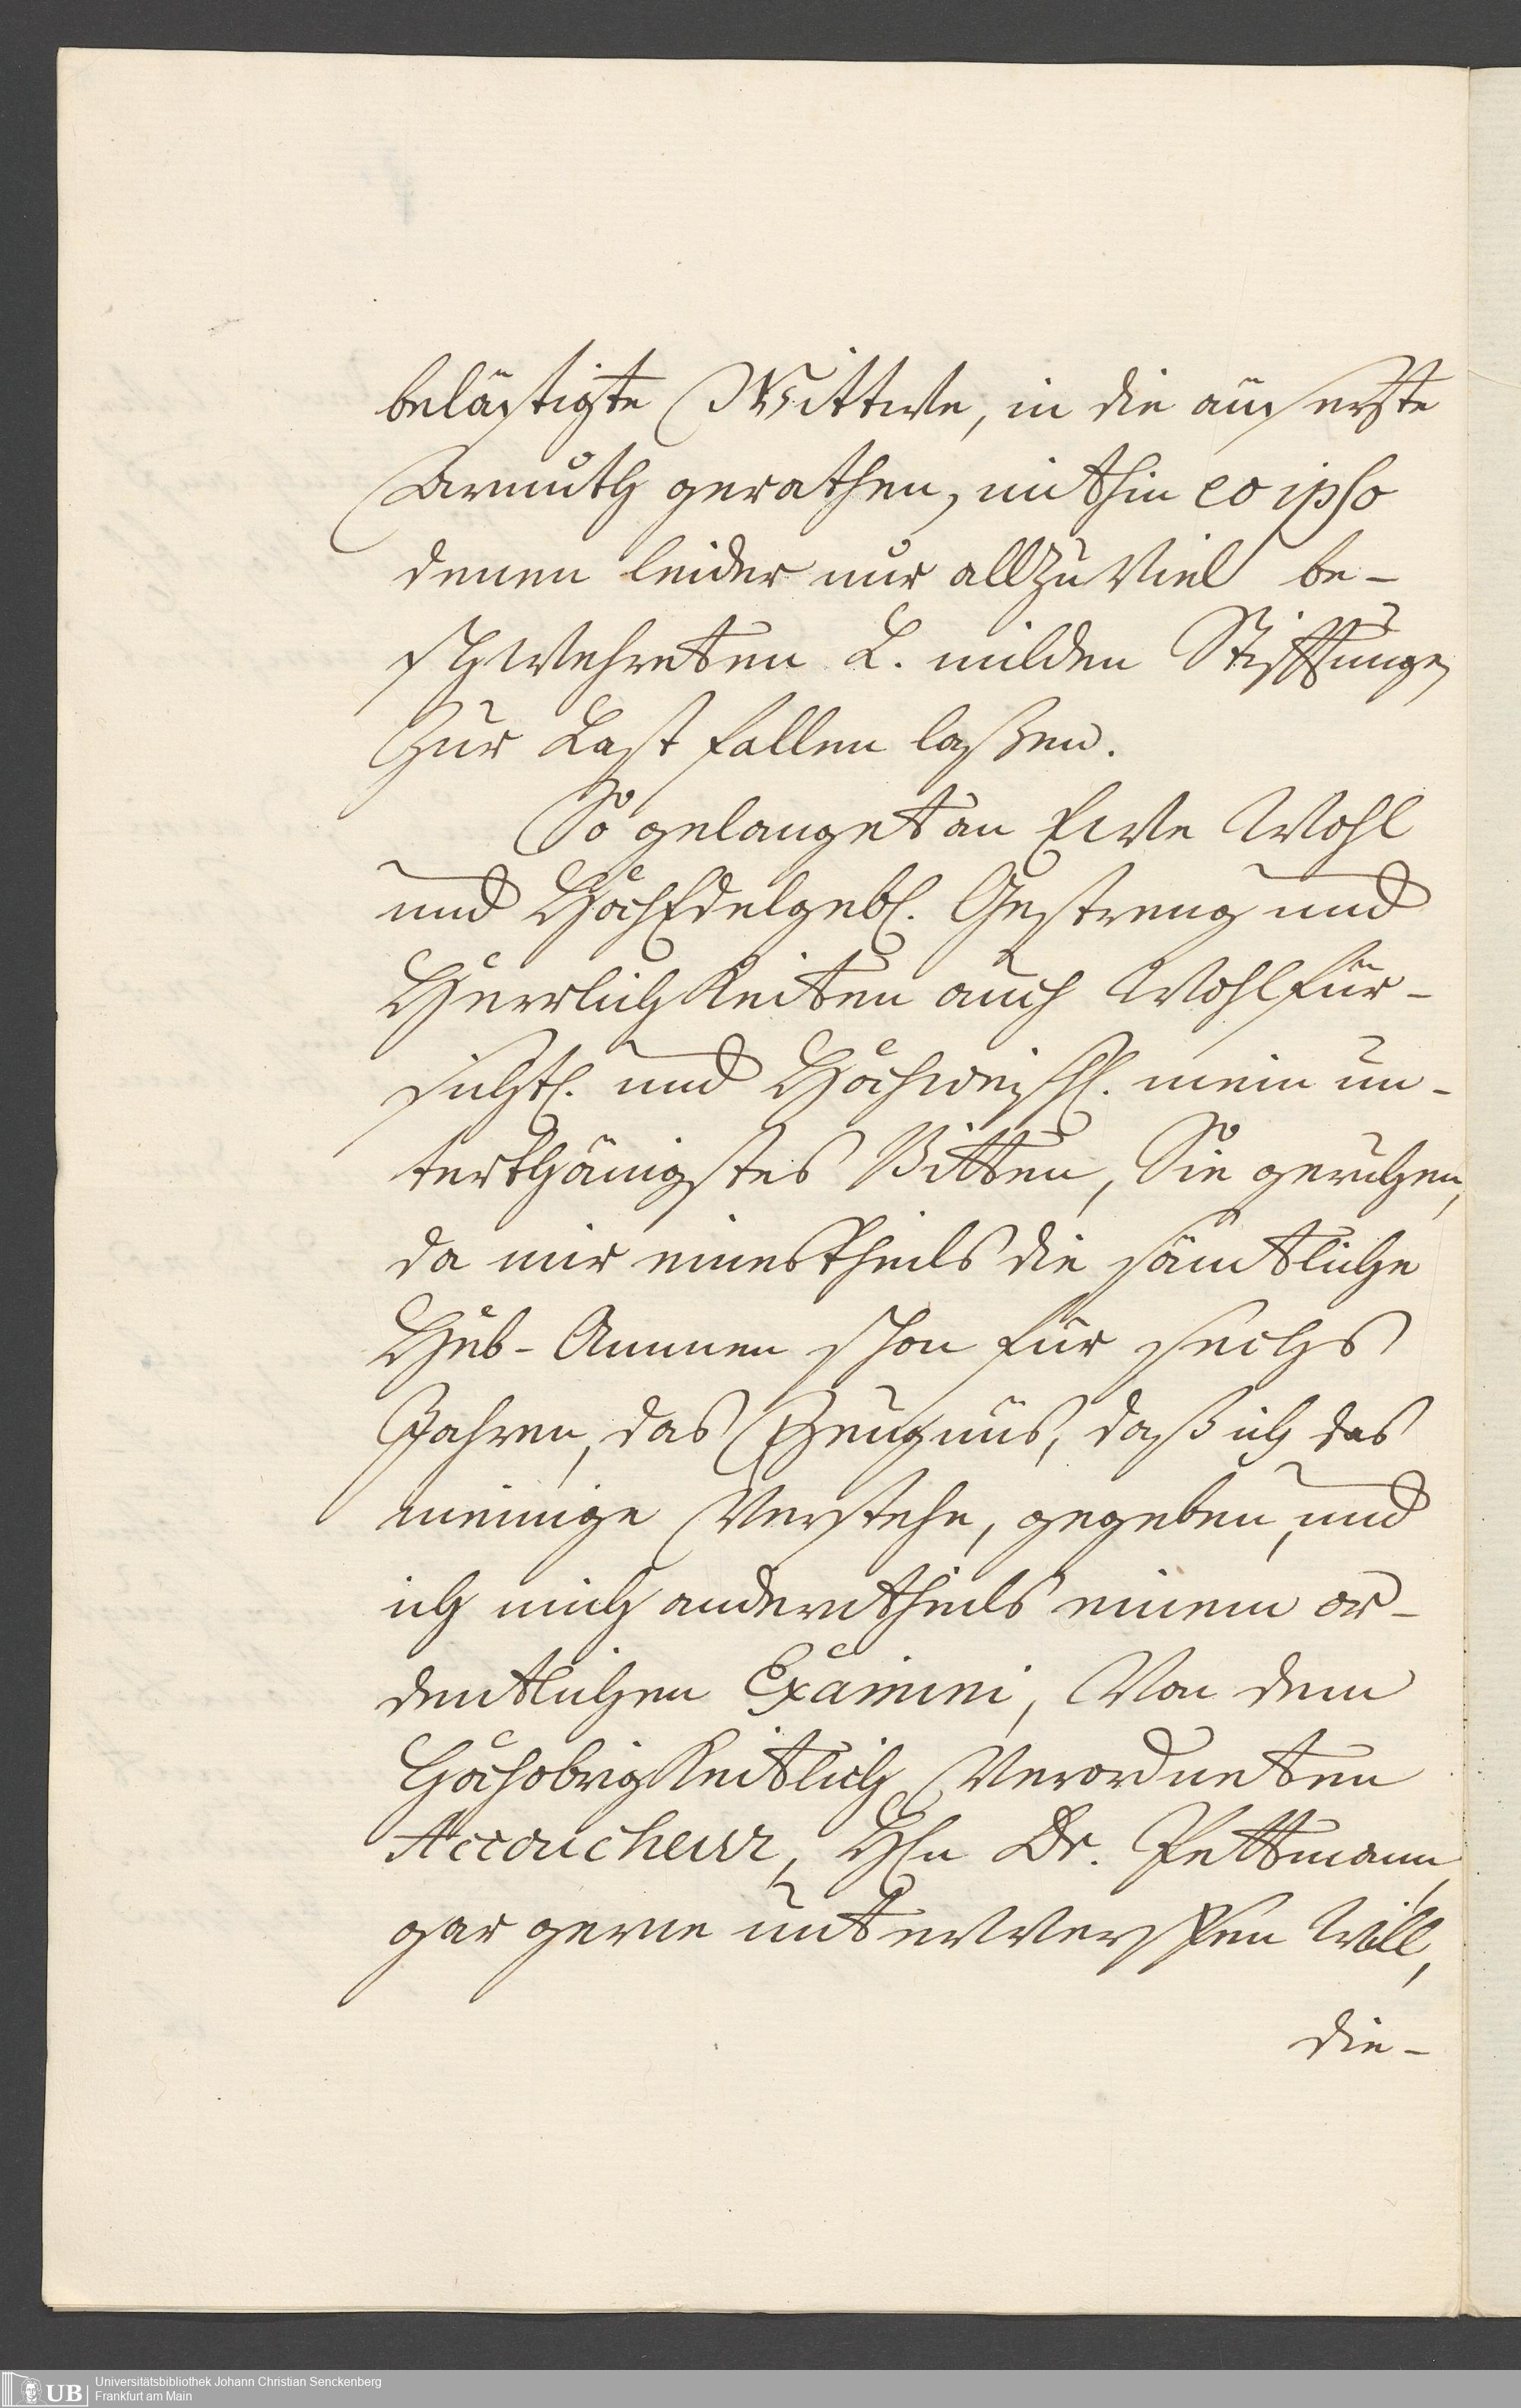 belästigte Wittwe, in die äuserste
Armuth gerathen, mithin eo ipso
denen leider nur allzuviel be-
schwehreten L. milden Stifftungen
zur Last fallen laßen.
So gelanget an Ewe Wohl
und HochEdelgebl. Gestreng und
Herrlichkeiten auch Wohlfür-
sichtl. und Hochweißl. mein un-
terthänigstes Bitten, Sie geruhen,
da mir einestheils die sämtliche
Heb-Ammen schon für sechs
Jahren, das Zeugnüs, daß ich das
meinige verstehe, gegeben, und
ich mich anderntheils einem or-
dentlichen Examini, von dem
Hochobrigkeitlich verordneten
Accoucheur, Hln Dr. Pettmann,
gar gerne unterwerffen will,
die-
Universitätsbibliothek Johann Christian Senckenberg
Frankfurt am Main
UB